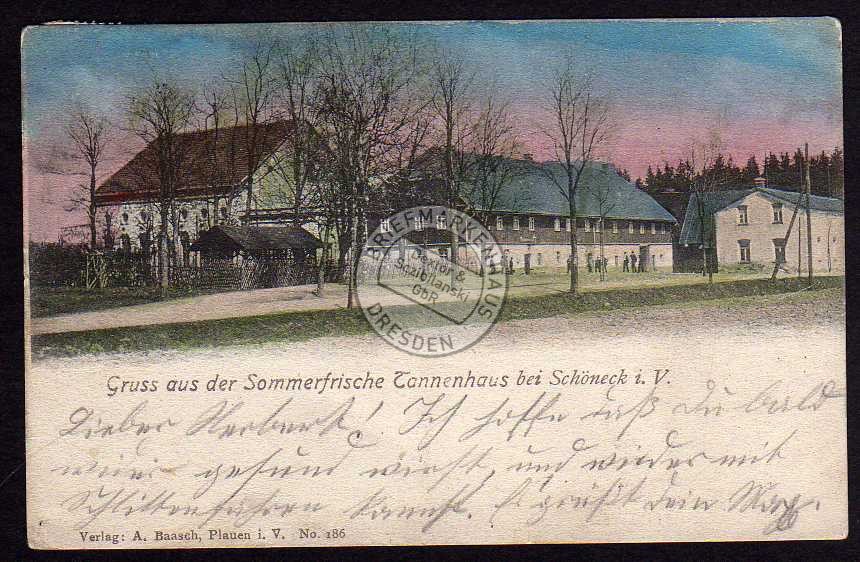 BRIEFMARKENHAUS
Dexior &
Bszibilanski
GbR
DRESDEN
Gruss aus der Sommerfrische Tannenhaus bei Schöneck i. V.
Lieber Herbert! Ich hoffe daß Du bald
wieder gesund wirst, und wieder mit
Schlittenfahren kannst. Es grüßt Dein Max.
Verlag: A. Baasch, Plauen i. V. No. 186